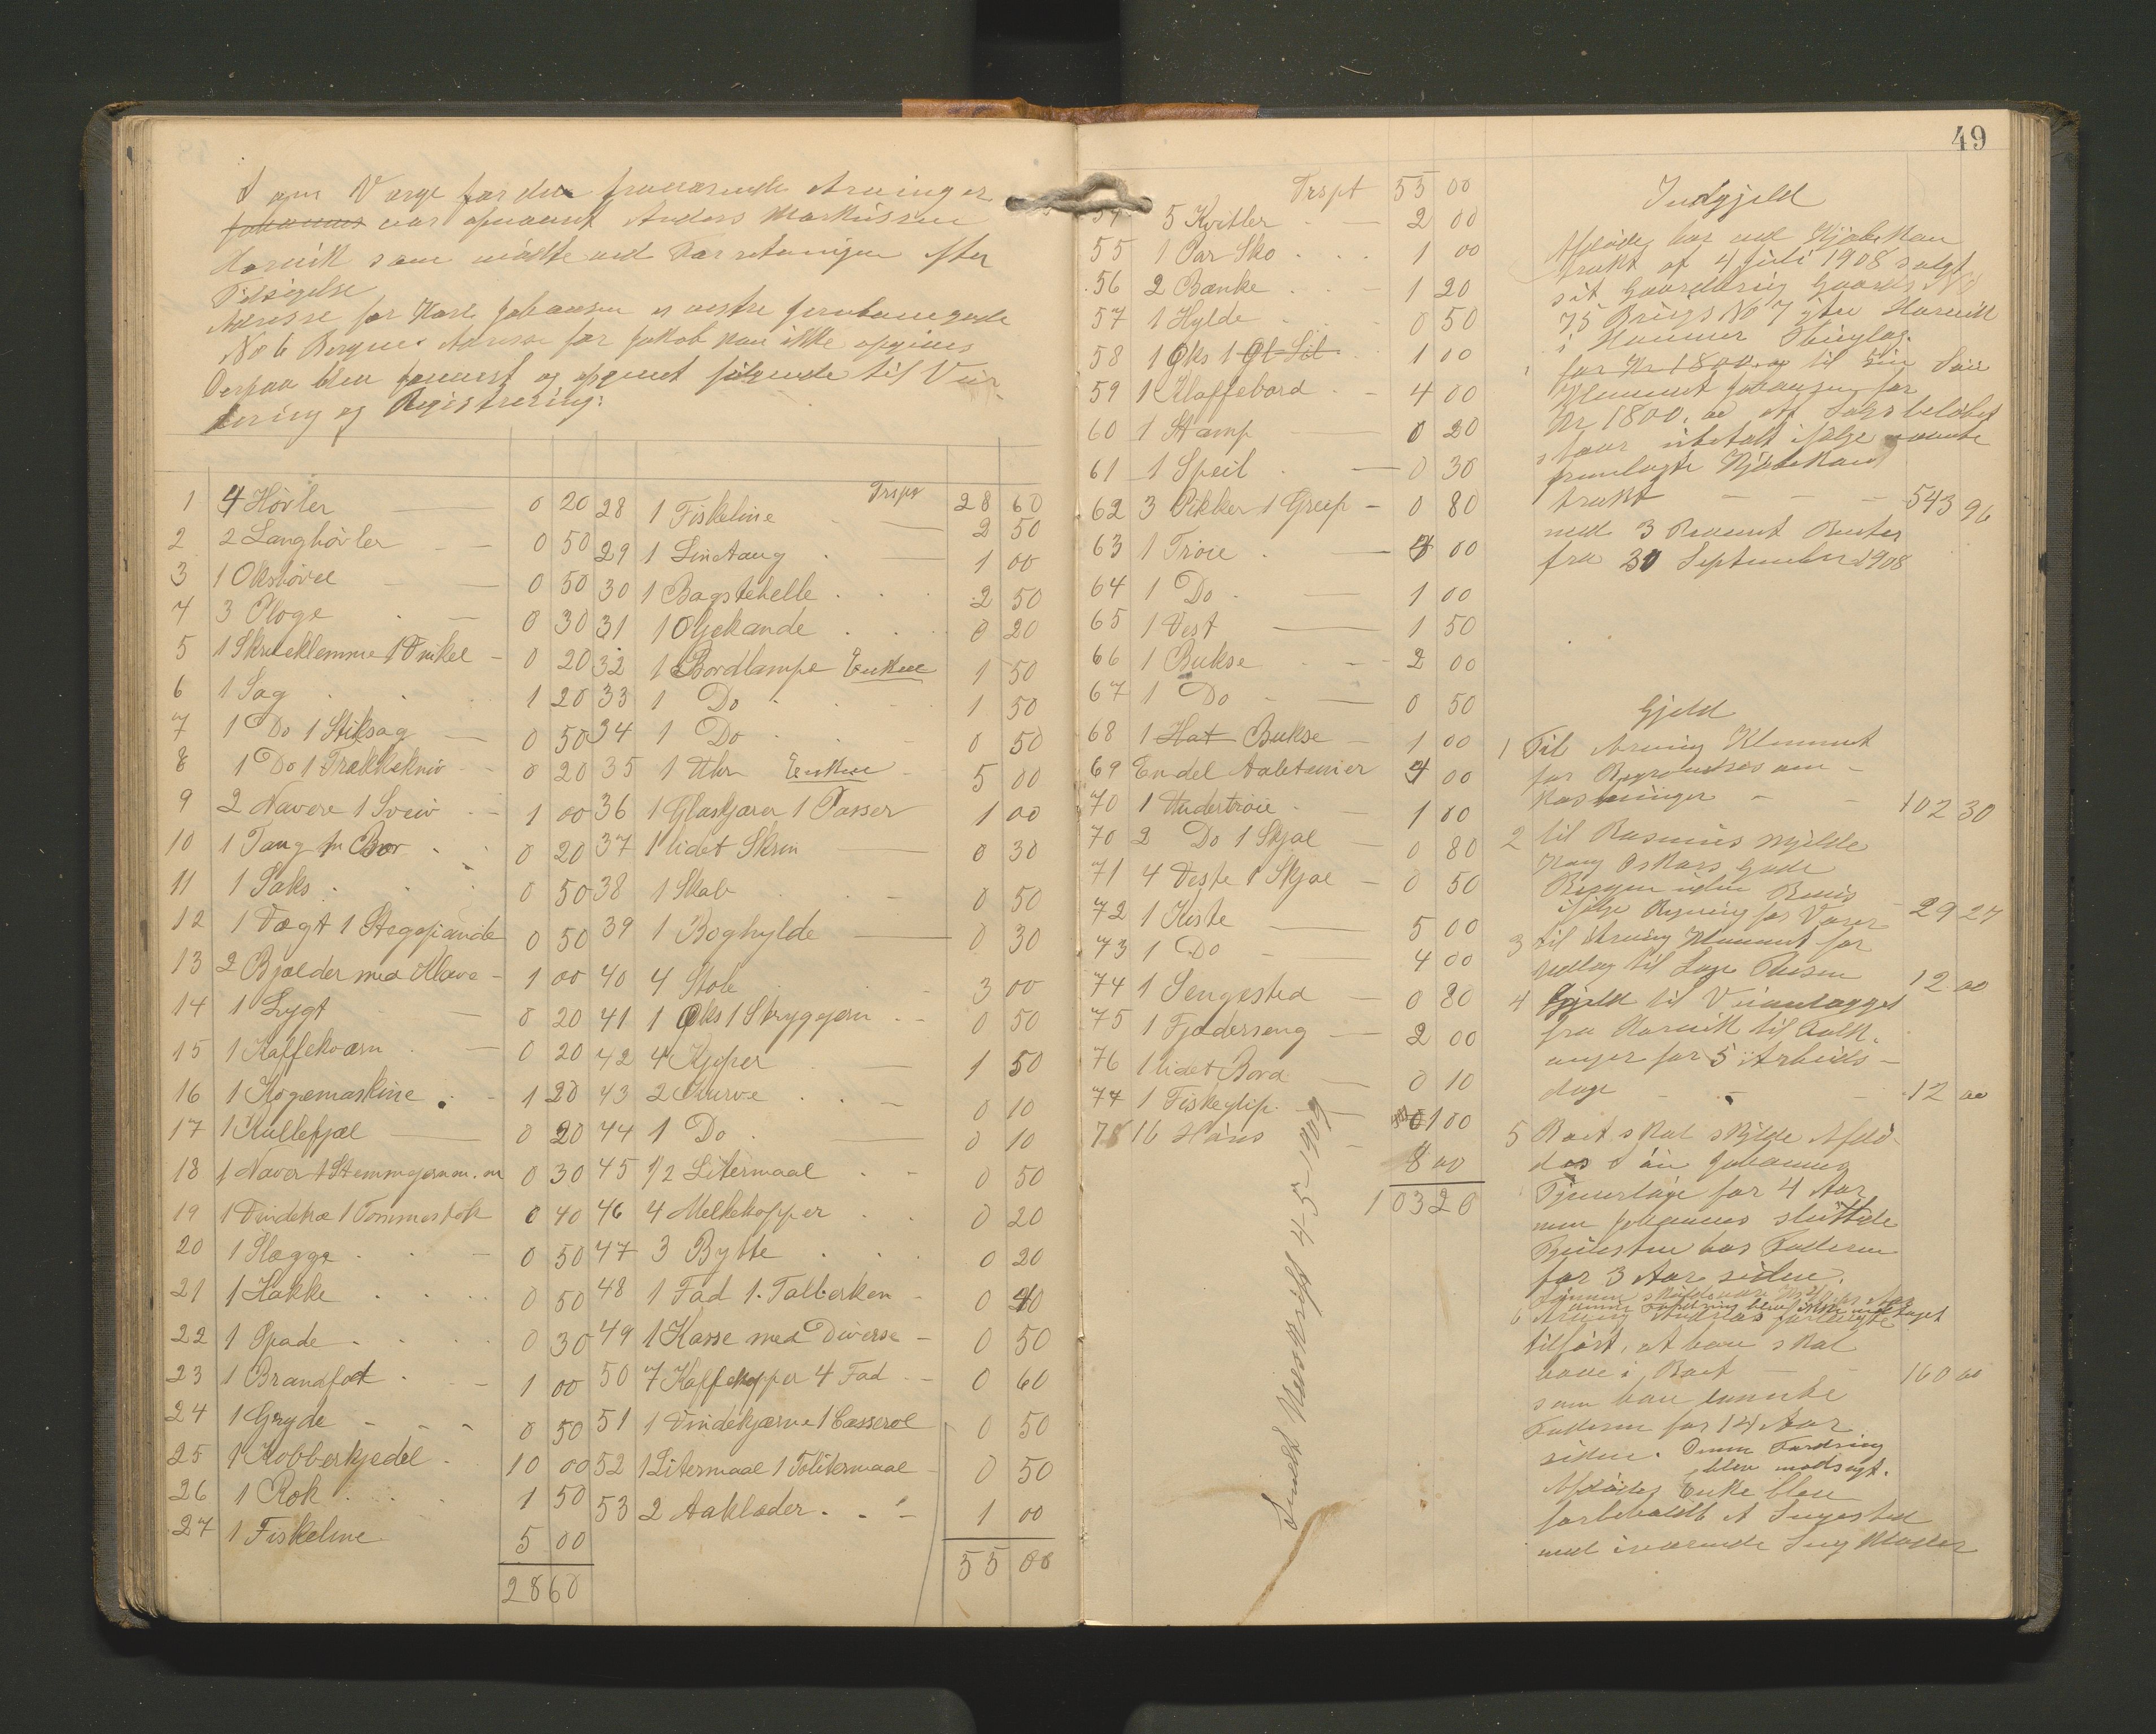 Som Værge for den fraværende Arvinger
Johannes var opnævnt Anders Markussen
Harvik som mødte ved Forretningen efter
Tilsigelse
Adresse for Karl Johansen er vestre Jernbanegade
No 6 Bergen. Adresse for Jakob kan ikke opgives
Derpaa blev fremvist og opgivet følgende til Vur-
dering og Registrering:
1 4 Høvler 0 20
2 2 Langhøvler 0 50
3 1 Okshøvel 0 50
4 3 Ploge 0 30
5 1 Skrueklemme 1 Vinkel 0 20
6 1 Sag 1 20
7 1 Do 1 Stiksag 0 50
8 1 Do 1 Trækkekniv 0 20
9 2 Navere 1 Sveiv 1 00
10 1 Tang m Bor 0 20
11 1 Saks 0 50
12 1 Vægt 1 Stegepande 0 50
13 2 Bjælder med Klave 1 00
14 1 Lygt 0 20
15 1 Kaffekværn 0 20
16 1 Kogemaskine 1 20
17 1 Rullefjæl 0 20
18 1 Naver 1 Stemmejern m. m 0 30
19 1 Vindetræ 1 Tommestok 0 40
20 1 Slægge 0 50
21 1 Hakke 0 50
22 1 Spade 0 30
23 1 Brandfot 1 00
24 1 Gryde 0 50
25 1 Kobberkjedel 10 00
26 1 Rok 1 50
27 1 Fiskeline 5 00
28 60
Trspt 28 60
28 1 Fiskeline 2 50
29 1 Linetaug 1 00
30 1 Bagstehelle 2 50
31 1 Oljekande 0 20
32 1 Bordlampe Enken 1 50
33 1 Do 1 50
34 1 Do 0 50
35 1 Uhr Enken 5 00
36 1 Glaskjærer 1 Passer 1 00
37 1 lidet Skrin 0 30
38 1 Skab 0 50
39 1 Boghylde 0 30
40 4 Stole 3 00
41 1 Øks 1 Strygejern 0 50
42 4 Kjøper 1 50
43 2 Kurve 0 10
44 1 Do 0 10
45 1/2 Litermaal 0 50
46 4 Melkekopper 0 20
47 3 Bytte 0 20
48 1 Fad 1 Tallerken 0 40
49 1 Kasse med Diverse 0 50
50 7 Kaffekopper 4 Fad 0 60
51 1 Vindekjærne 1 Casserol 0 50
52 1 Litermaal 1 Tolitermaal 0 50
53 2 Aaklæder 1 00
55 00
49
Trspt 55 00
54 5 Kvitler 2 00
55 1 Par Sko 1 00
56 2 Bænke 1 20
57 1 Hylde 0 50
58 1 Øks 1 Øl-Söl 1 00
59 1 Klaffebord 4 00
60 1 Stamp 0 20
61 1 Speil 0 30
62 3 Pikker 1 Greep 0 80
63 1 Trøie 3 00
64 1 Do 1 00
65 1 Vest 1 50
66 1 Bukse 2 00
67 1 Do 0 50
68 1 Hat Bukse 1 00
69 Endel Aaletæner 4 00
70 1 Undertrøie 1 00
70 2 Do 1 Skjøl 0 80
71 4 Veste 1 Skjøl 0 50
72 1 Kiste 5 00
73 1 Do 4 00
74 1 Sengested 0 80
75 1 Fjæderseng 2 00
76 1 lidet Bord 0 10
77 1 Fiskeglip 1 00
78 16 Høns 8 00
103 20
Sendt Udskrift 4-5-1909
Indgjeld
Afdøde har ved Kjøbekon
trakt af 4 Juli 1908 solgt
sit Gaardbrug Gaards No
75 Brugs No 7 ytre Harvik
i Hammer Thinglag.
for Kr 1800.00 til sin Søn
Klemmet Johansen for
Kr. 1800.00 Af Salgsbeløbet
staar ubetalt ifølge nævnte
fremlagte Kjøbekon
trakt 543 96
med 3 Procent Renter
fra 30 September 1908
Gjeld
1 Til Arving Klemmet
for Begravelses om-
kostninger 102 30
2 til Rasmus Mjelde
Kong Oskars Gade
Bergen uden Bevis
ifølge Regning for Varer 29 27
3 til Arving Klemmet for
Udlæg til Læge 12 00
4 Gjeld til Veianlægget
fra Harvik til
anger for 5 Arbeids-
dage 12 00
5 Boet skal skylde Afdø-
des Søn Johannes
Tjenerløn for 4 Aar
men Johannes sluttede
Tjenesten hos Faderen
for 3 Aar siden.
6 Arving Andreas forlangte
tilført, at han skal
have i Boet 160 00
som han laante
Faderen for 14 Aar
siden. Denne Fordring
blev modsagt.
Afdødes Enke blev
forbeholdt et Sengested
med iværende Seng Klæder